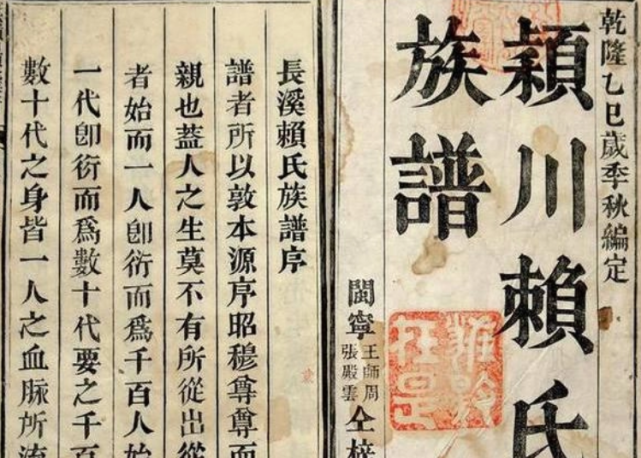 乾隆乙巳歲季秋編定
潁川賴氏
族譜
閩寧王師周張殿雲仝梓
長溪賴氏族譜序
譜者所以敦本源序昭穆尊尊而
親也蓋人之生莫不有所從出從
者始而一人卽衍而爲千百人始
一代卽衍而爲數十代要之千百
數十代之身皆一人之血脉所流